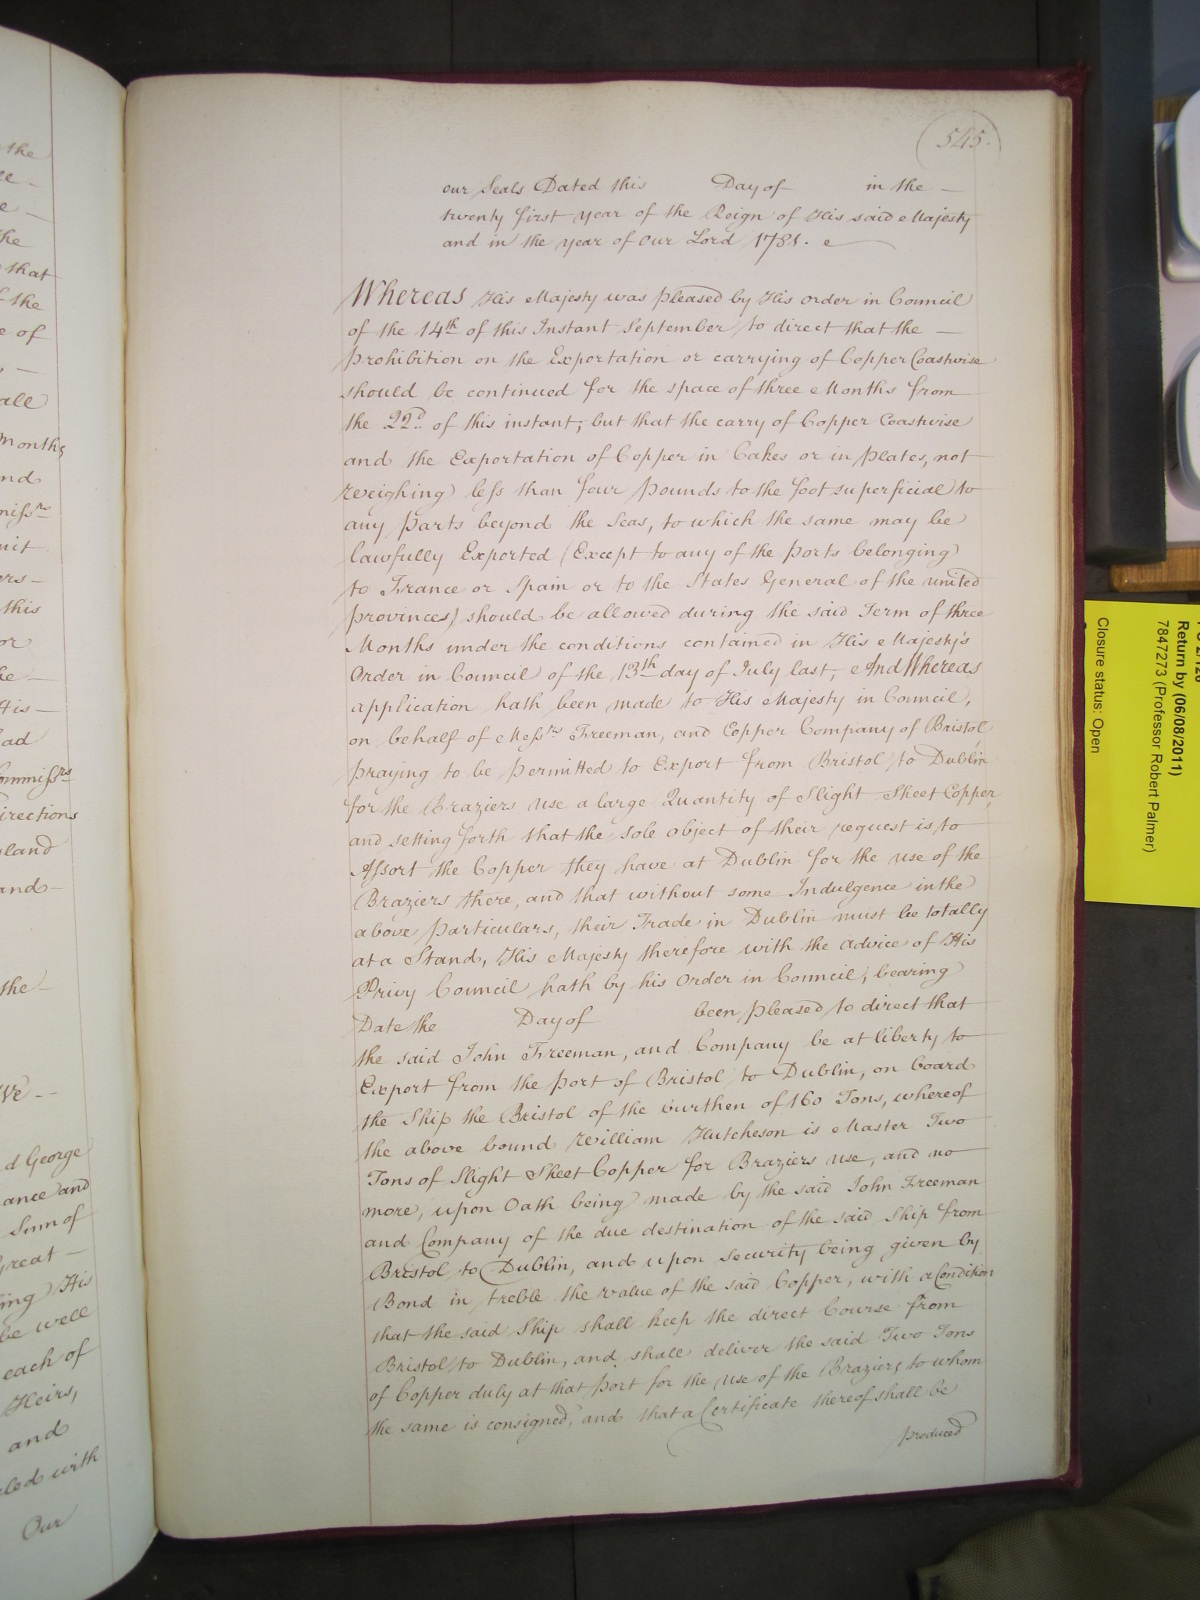 545.
our Seals Dated this Day of in the —
twenty first year of the Reign of His said Majesty
and in the year of Our Lord 1781.
Whereas His Majesty was pleased by His Order in Council
of the 14th of this Instant September to direct that the —
Prohibition on the Exportation or carrying of Copper Coastwise
should be continued for the space of three Months from
the 22d of this instant, but that the carry of Copper Coastwise
and the Exportation of Copper in Cakes or in Plates, not
weighing less than four Pounds to the foot superficial to
any Parts beyond the Seas, to which the same may be
lawfully Exported (Except to any of the Ports belonging
to France or Spain or to the States General of the united
Provinces) should be allowed during the said Term of three
Months under the conditions contained in His Majesty's
Order in Council of the 13th day of July last, And Whereas
application hath been made to His Majesty in Council,
on behalf of Messrs Freeman, and Copper Company of Bristol,
praying to be Permitted to Export from Bristol to Dublin
for the Braziers use a large Quantity of Slight Sheet Copper,
and setting forth that the sole object of their request is to
Assort the Copper they have at Dublin for the use of the
Braziers there, and that without some Indulgence in the
above Particulars, their Trade in Dublin must be totally
at a Stand, His Majesty therefore with the advice of His
Privy Council hath by his Order in Council, bearing
Date the Day of been pleased to direct that
the said John Freeman, and Company be at liberty to
Export from the Port of Bristol to Dublin, on board
the Ship the Bristol of the burthen of 160 Tons, whereof
the above bound William Hutcheson is Master Two
Tons of Slight Sheet Copper for Braziers use, and no
more, upon Oath being made by the said John Freeman
and Company of the due destination of the said Ship from
Bristol to Dublin, and upon security being given by
Bond in treble the value of the said Copper, with a Condition
that the said Ship shall keep the direct Course from
Bristol to Dublin, and shall deliver the said Two Tons
of Copper duly at that Port for the use of the Braziers to whom
the same is consigned, and that a Certificate thereof shall be
produced
the
the
that
the
e of
all
Months
nd
this
or
His —
ad
irections
land
and —
the —
We --
d George
ance and
Sum of
Great —
ing His
be well
each of
Heirs,
and
led with
Our
Return by (06/08/2011)
7847273 (Professor Robert Palmer)
Closure status: Open